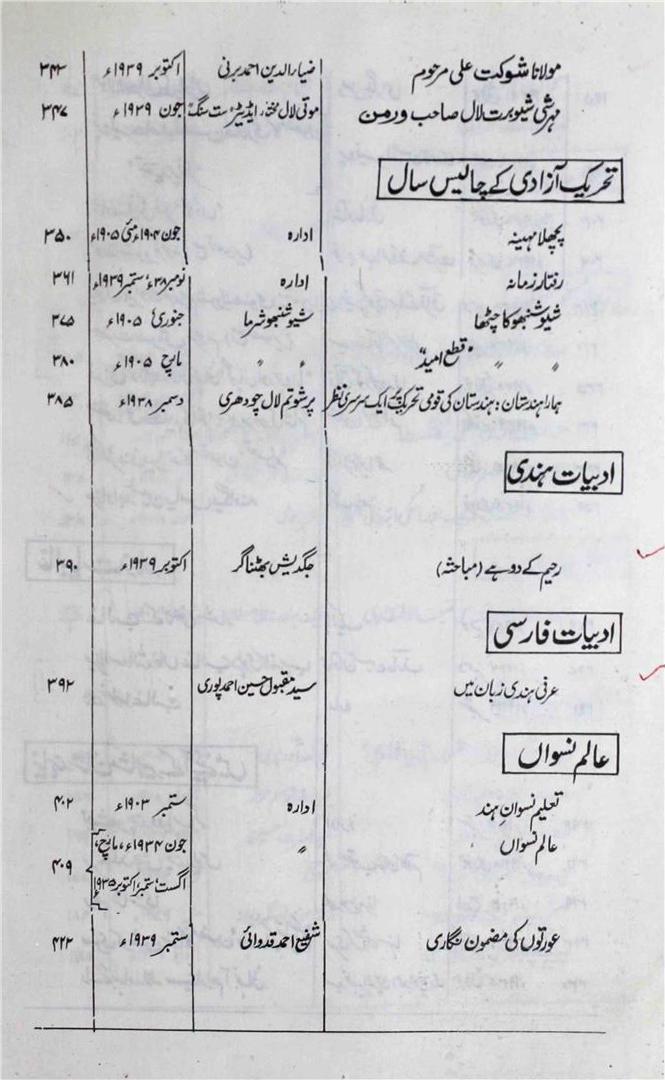 مولانا شوکت علی مرحوم ضیاءالدین احمد برنی اکتوبر ۱۹۳۹ء ۳۴۳
مہرشی شیوبرت لال صاحب ورمن موتی لال مختار ایڈیٹر "ست سنگ" جون ۱۹۳۹ء ۳۴۷
تحریک آزادی کے چالیس سال
پچھلا مہینہ ادارہ جون ۱۹۰۴ء مئی ۱۹۰۵ء ۳۵۰
رفتارِ زمانہ ادارہ نومبر ۳۸ء، ستمبر ۱۹۳۹ء ۳۶۱
شیو شنبھو کا چٹھا شیو شنبھو شرما جنوری ۱۹۰۵ء ۳۷۵
" " "قطع امید" " " مارچ ۱۹۰۵ء ۳۸۰
ہمارا ہندستان: ہندستان کی قومی تحریک پر ایک سرسری نظر پرشوتم لال چودھری دسمبر ۱۹۳۸ء ۳۸۵
ادبیات ہندی
رحیم کے دوہے (مباحثہ) جگدیش بھٹناگر اکتوبر ۱۹۳۹ء ۳۹۰
ادبیات فارسی
عرفی ہندی زبان میں سید مقبول حسین احمد پوری ۳۹۲
عالم نسواں
تعلیم نسوانِ ہند ادارہ ستمبر ۱۹۰۳ء ۴۰۲
عالم نسواں " جون ۱۹۳۴ء، مارچ، ۴۰۹
اگست، ستمبر، اکتوبر ۱۹۳۵ء
عورتوں کی مضمون نگاری شفیع احمد قدوائی ستمبر ۱۹۳۹ء ۴۲۲